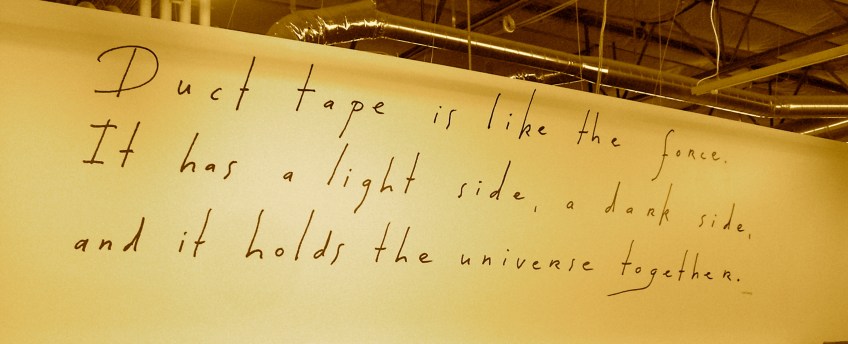 Duct tape is like the force.
It has a light side, a dark side,
and it holds the universe together.